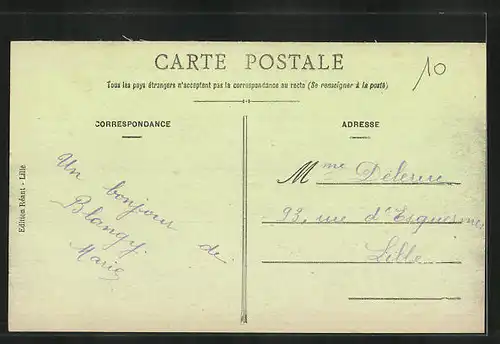 10
CARTE POSTALE
Tous les pays étrangers n'acceptent pas la correspondance au recto (Se renseigner à la poste)
CORRESPONDANCE
ADRESSE
Edition Réant - Lille
Un bonjour de
Blangy.
Marie
Mme Delerue
93, rue d'Esquermes
Lille